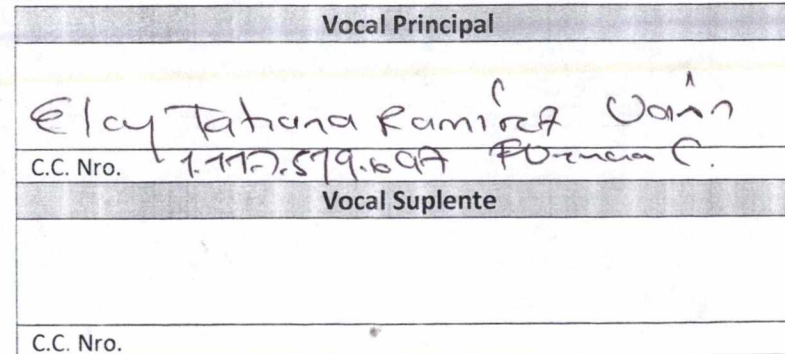 Vocal Principal
Elcy Tatiana Ramírez
C.C. Nro. 1.117.519.697 Florencia C.
Vocal Suplente
C.C. Nro.